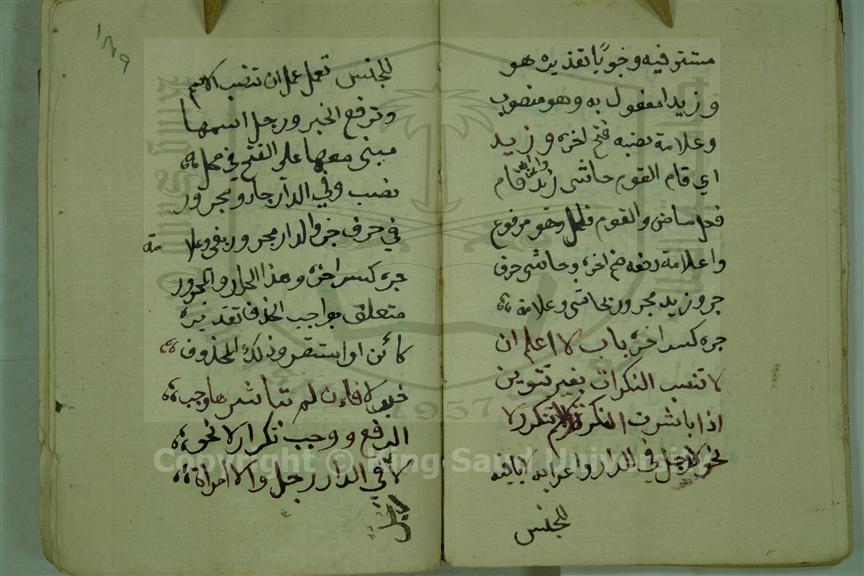 مستتر فيه وجوبا تقديره هو
وزيدا مفعول به وهو منصوب
وعلامة نصبه فتح اخره وزيد
اي قام القوم حاشى زيد واعرابه قام
فعل ماض والقوم فاعل وهو مرفوع
واعلامة رفعه ضم اخره وحاشى حرف
جر وزيد مجرور بحاشى وعلامة
جره كسر اخره باب لا اعلم ان
لا تنصب النكرات بغير تنوين
اذا باشرت النكرة ولم تتكرر لا
نحو لا رجل في الدار واعرابه لا نافية
للجنس
١٢٩
للجنس تعمل عمل ان تنصب الاسم
وترفع الخبر ورجل اسمها
مبنى معها على الفتح في محل
نصب وفي الدار جار ومجرور
في حرف جر والدار مجرور بفي وعلامة
جره كسر اخره وهذا الجار والمجرور
متعلق بواجب الحذف تقديره
كائن او استقر وذلك المحذوف
خبر لا فان لم تباشرها وجب
الرفع ووجب تكرار لا نحو
لا في الدار رجل ولا امراة
رجل
Copyright © King Saud University
1957